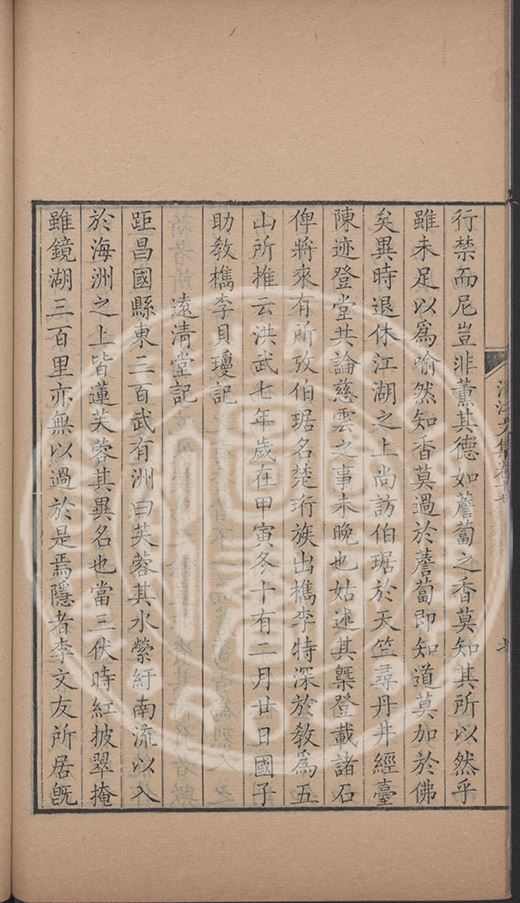 行禁而尼豈非薰其德如薝蔔之香莫知其所以然乎
雖未足以爲喻然知香莫過於薝蔔即知道莫加於佛
矣異時退休江湖之上尚訪伯琚於天竺尋丹井經臺
陳迹登堂共論慈雲之事未晚也姑述其槩登載諸石
俾將來有所攷伯琚名楚珩族出檇李特深於教爲五
山所推云洪武七年歲在甲寅冬十有二月廿日國子
助教檇李貝瓊記
遠清堂記
距昌國縣東二百武有洲曰芙蓉其水縈紆南流以入
於海洲之上皆蓮芙蓉其異名也當三伏時紅披翠掩
雖鏡湖三百里亦無以過於是焉隱者李文友所居旣